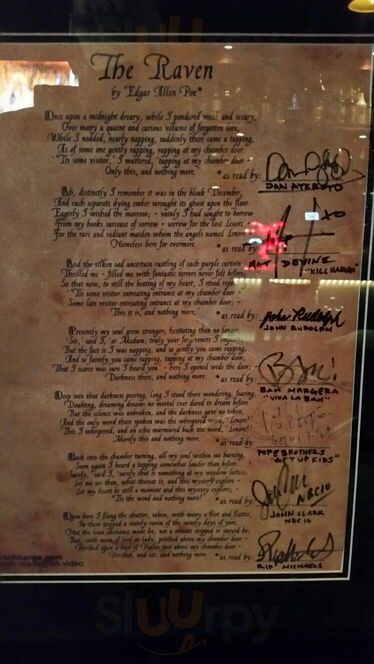 The Raven
by Edgar Allen Poe*
Once upon a midnight dreary, while I pondered weak and weary,
Over many a quaint and curious volume of forgotten lore,
While I nodded, nearly napping, suddenly there came a tapping,
As of some one gently rapping, rapping at my chamber door.
'Tis some visitor,' I muttered, 'tapping at my chamber door
Only this, and nothing more.'
* as read by:
DAN AYKROYD
Ah, distinctly I remember it was in the bleak December,
And each separate dying ember wrought its ghost upon the floor.
Eagerly I wished the morrow; - vainly I had sought to borrow
From my books surcease of sorrow - sorrow for the lost Lenore -
For the rare and radiant maiden whom the angels named Lenore
Nameless here for evermore.
* as read by
MAT DEVINE
"KILL HANNAH"
And the silken sad uncertain rustling of each purple curtain
Thrilled me - filled me with fantastic terrors never felt before;
So that now, to still the beating of my heart, I stood repeating
'Tis some visitor entreating entrance at my chamber door
Some late visitor entreating entrance at my chamber door;
This it is, and nothing more,'
* as read by:
John Rudolph
JOHN RUDOLPH
Presently my soul grew stronger; hesitating then no longer,
'Sir,' said I, 'or Madam, truly your forgiveness I implore;
But the fact is I was napping, and so gently you came rapping,
And so faintly you came tapping, tapping at my chamber door,
That I scarce was sure I heard you - here I opened wide the door;
Darkness there, and nothing more.
* as read by
BAM MARGERA
"VIVA LA BAM"
Deep into that darkness peering, long I stood there wondering, fearing,
Doubting, dreaming dreams no mortal ever dared to dream before
But the silence was unbroken, and the darkness gave no token,
And the only word there spoken was the whispered word, 'Lenore!'
This I whispered, and an echo murmured back the word, 'Lenore!'
Merely this and nothing more.
* as read by
POPE BROTHERS
"GET UP KIDS"
Back into the chamber turning, all my soul within me burning,
Soon again I heard a tapping somewhat louder than before.
'Surely,' said I, 'surely that is something at my window lattice;
Let me see then, what thereat is, and this mystery explore -
Let my heart be still a moment and this mystery explore; -
'Tis the wind and nothing more!'
* as read by:
NBC10
JOHN CLARK
NBC 10
Open here I flung the shutter, when, with many a flirt and flutter,
In there stepped a stately raven of the saintly days of yore.
Not the least obeisance made he; not a minute stopped or stayed he;
But, with mien of lord or lady, perched above my chamber door -
Perched upon a bust of Pallas just above my chamber door -
Perched, and sat, and nothing more.
* as read by
RIP MICHAELS
on video
Sluurpy